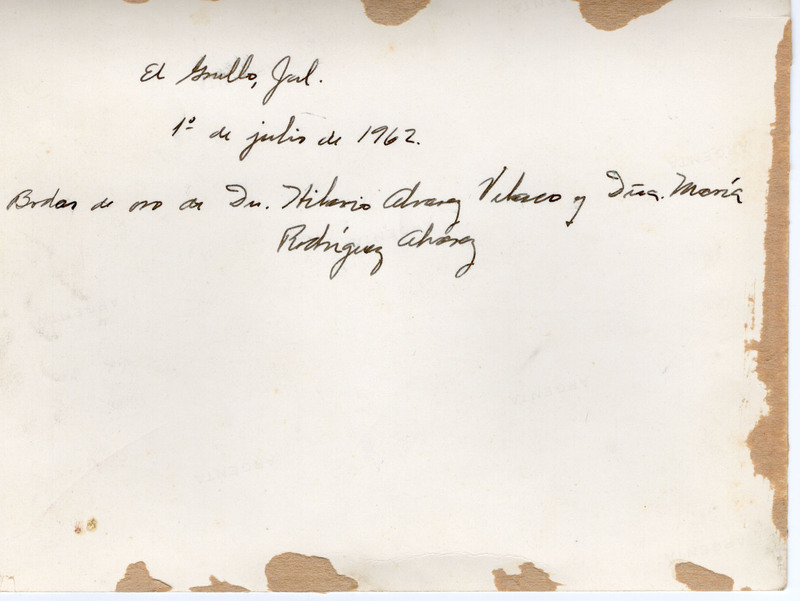 El Grullo, Jal.
1º de julio de 1962.
Bodas de oro de Dn. Hilario Alvarez Velasco y Dña. María
Rodríguez Alvárez